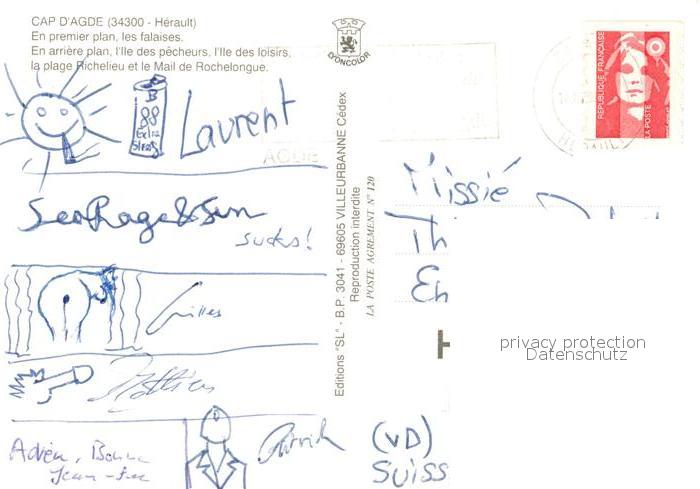 CAP D'AGDE (34300 - Hérault)
En premier plan, les falaises.
En arrière plan, l'Ile des pêcheurs, l'Ile des loisirs,
la plage Richelieu et le Mail de Rochelongue.
LYONCOLOR
B
88
Extra
Strong
Laurent
AGDE
Sea, Rage & Sun
sucks!
Gilles
Mathieu
Patrick
Jean-Luc
Editions "SL" - B.P. 3041 - 69605 VILLEURBANNE Cédex
Reproduction interdite
LA POSTE AGREMENT N° 120
REPUBLIQUE FRANÇAISE
LA POSTE
HERAULT
Missié
Th
En
privacy protection
Datenschutz
(VD)
Suiss